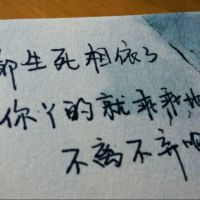 都生死相依了
你丫的就乖乖地
不离不弃吧